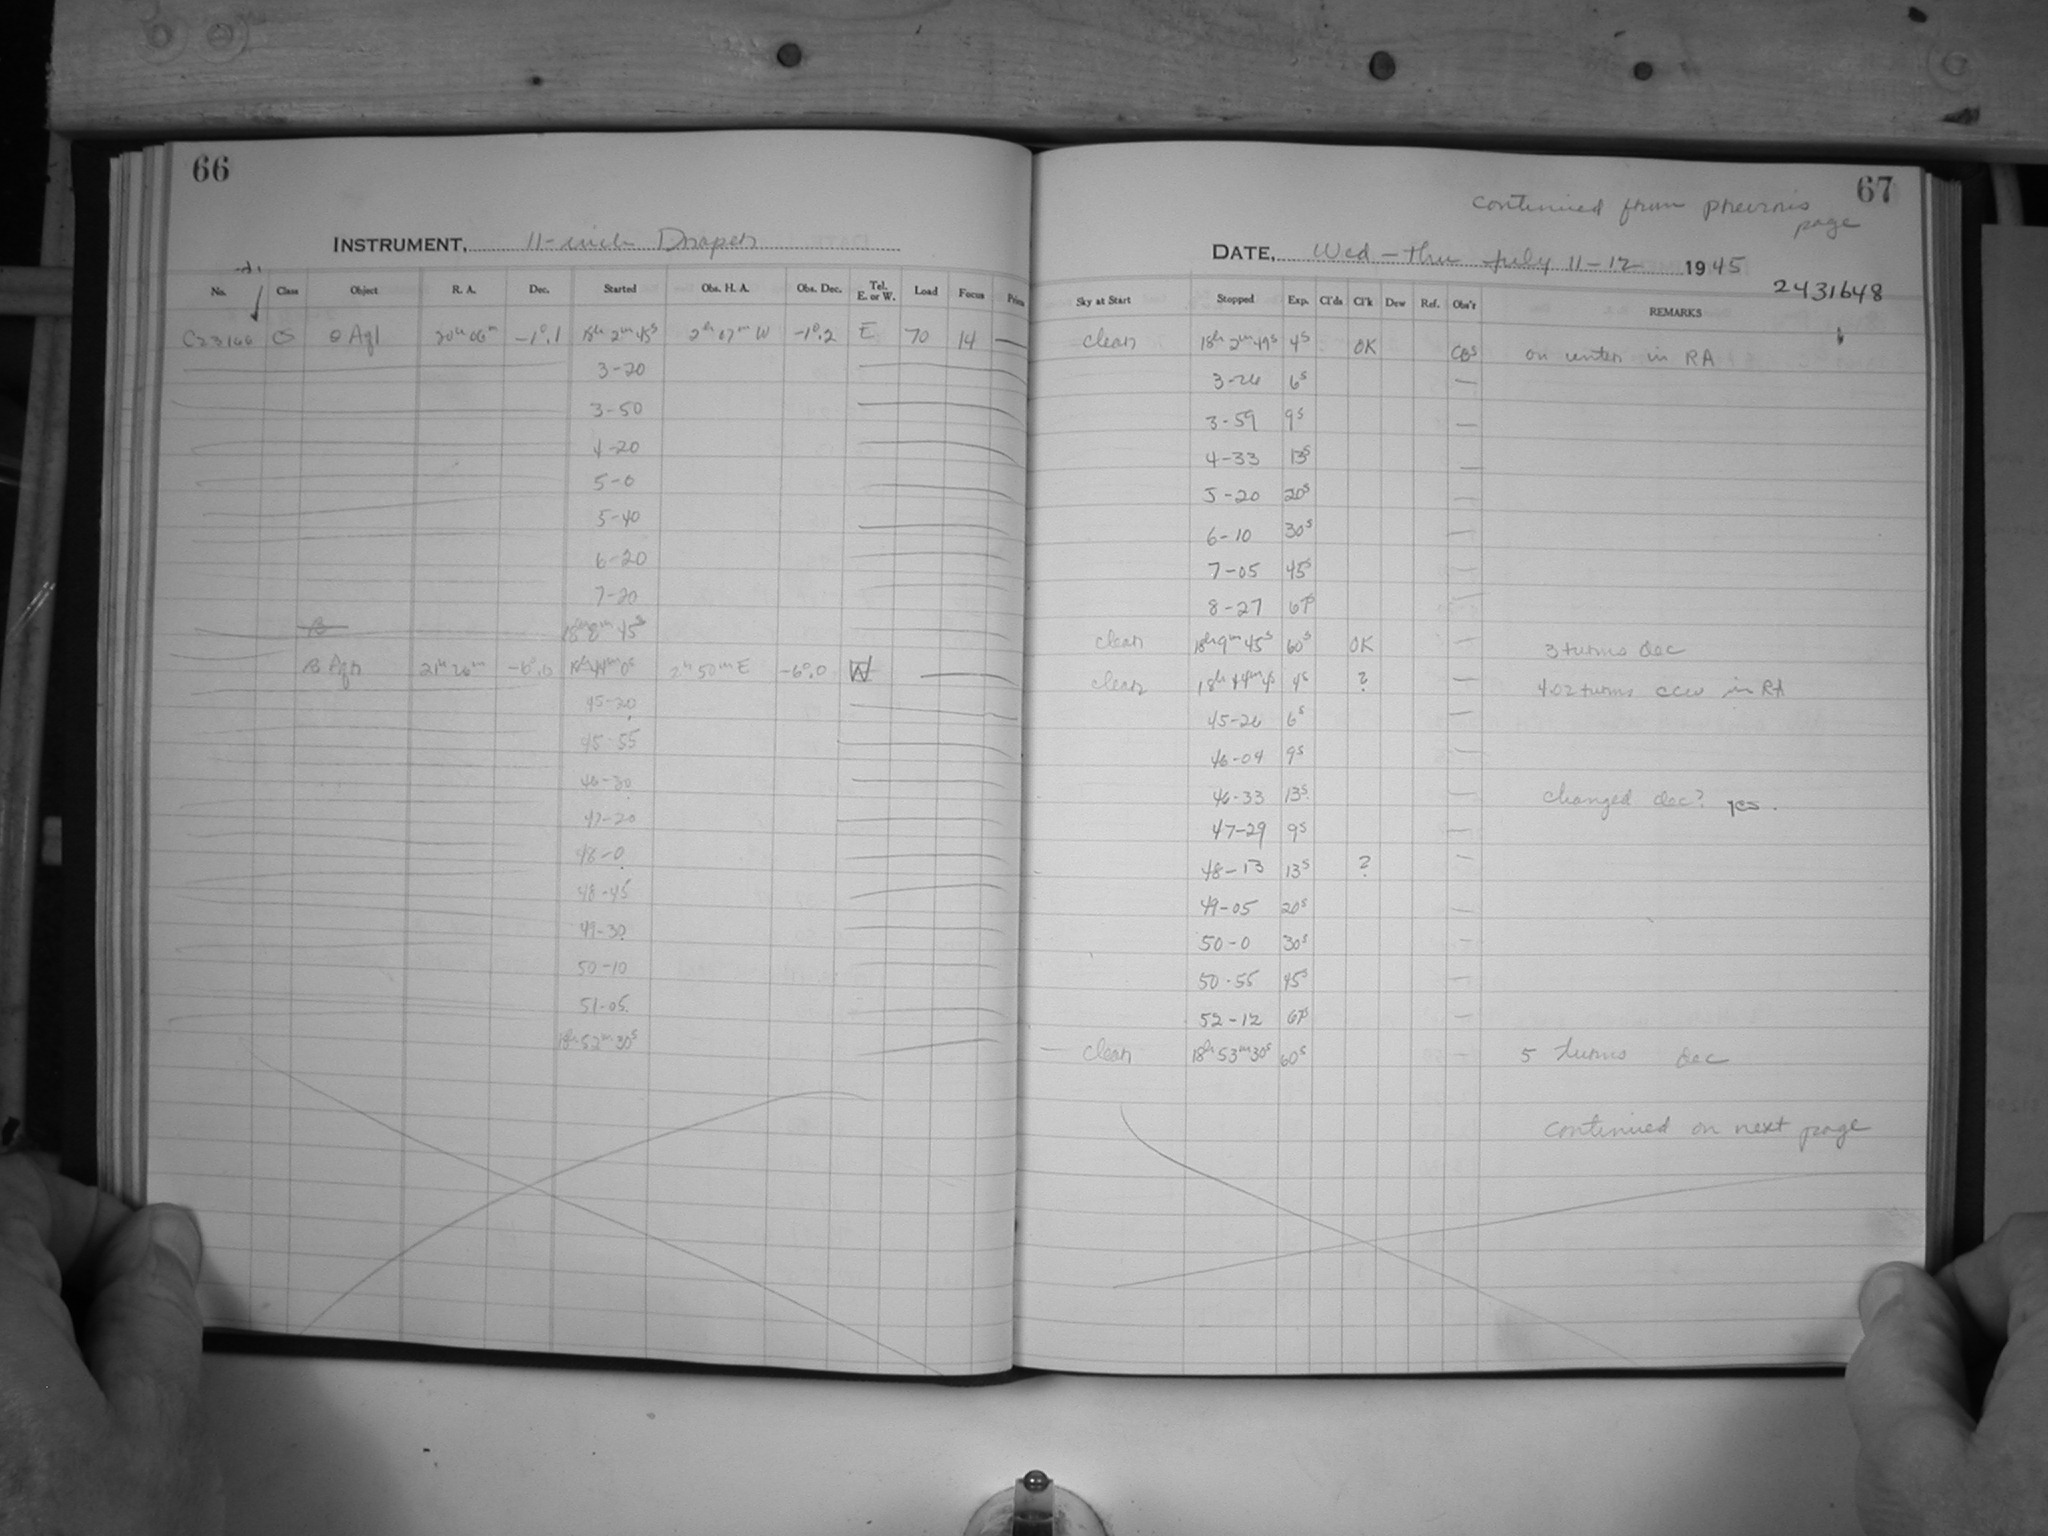 66
INSTRUMENT, 11-inch Draper
No. Class Object R. A. Dec. Started Obs. H. A. Obs. Dec. Tel. E. or W. Load Focus Prism
C23166 CS θ Aql 20h 06m -1°.1 18h 2m 45s 2h 07m W -1°.2 E 70 14
3-20
3-50
4-20
5-0
5-40
6-20
7-20
18h 8m 45s
β Aqr 21h 26m -6°.0 18h 44m 0s 2h 50m E -6°.0 W
45-20
45-55
46-20
47-20
48-0
48-45
49-30
50-10
51-05
18h 52m 30s
67
continued from previous page
DATE, Wed - thu July 11-12 1945
2431648
Sky at Start Stopped Exp. Cl'ds Cl'k Dew Ref. Obs'r REMARKS
clear 18h 2m 49s 4s OK CBS on center in RA
3-26 6s
3-59 9s
4-33 13s
5-20 20s
6-10 30s
7-05 45s
8-27 67s
clear 18h 9m 45s 60s OK 3 turns dec
clear 18h 44m 4s 4s ? 402 turns ccw in RA
45-26 6s
46-04 9s
46-33 13s changed dec? yes.
47-29 9s
48-13 13s ?
49-05 20s
50-0 30s
50-55 45s
52-12 67s
clear 18h 53m 30s 60s 5 turns dec
continued on next page